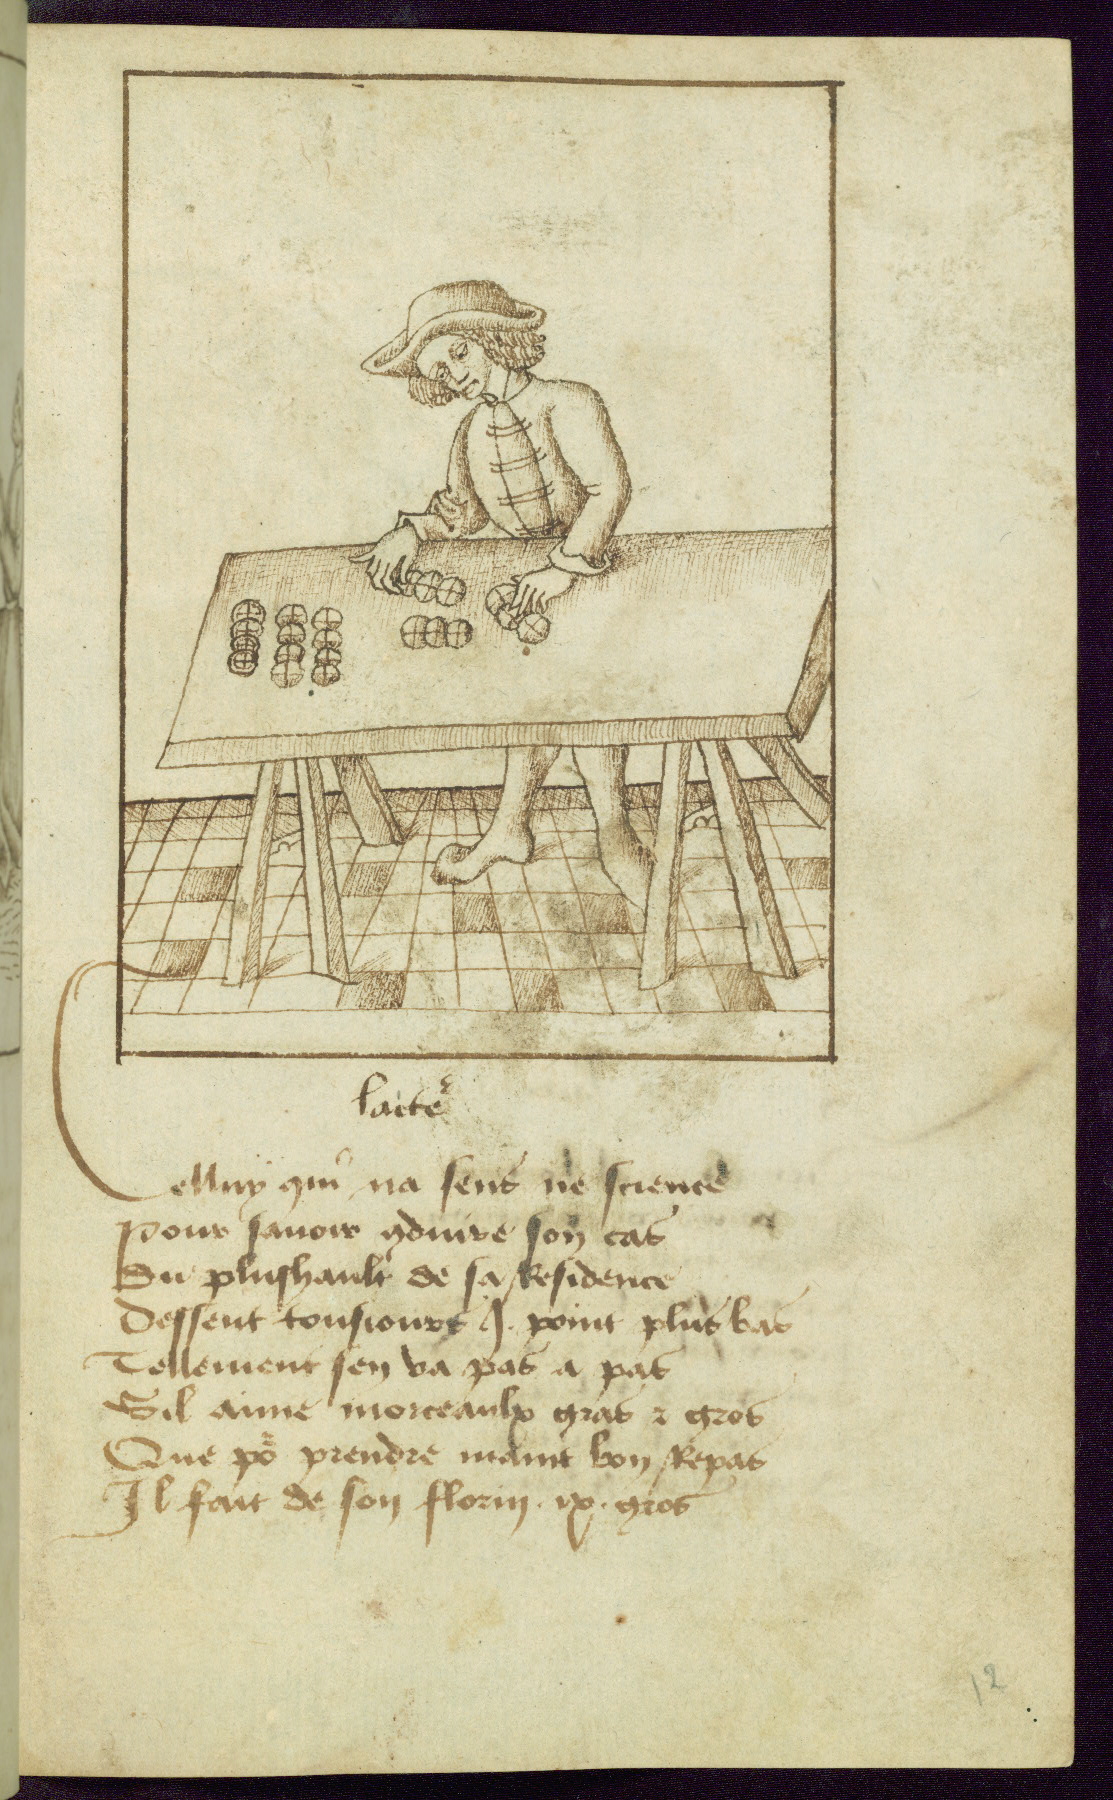 lacte
Celluy qui na sens ne science
Pour sauoir 9duire son cas
Du plushault de sa Residence
Dessent tousiours J. point plus bas
Tellement sen va pas a pas
Sil aime morceaulx gras z gros
Que po prendre maint bon Repas
Il fait de son florin . ix . gros
12